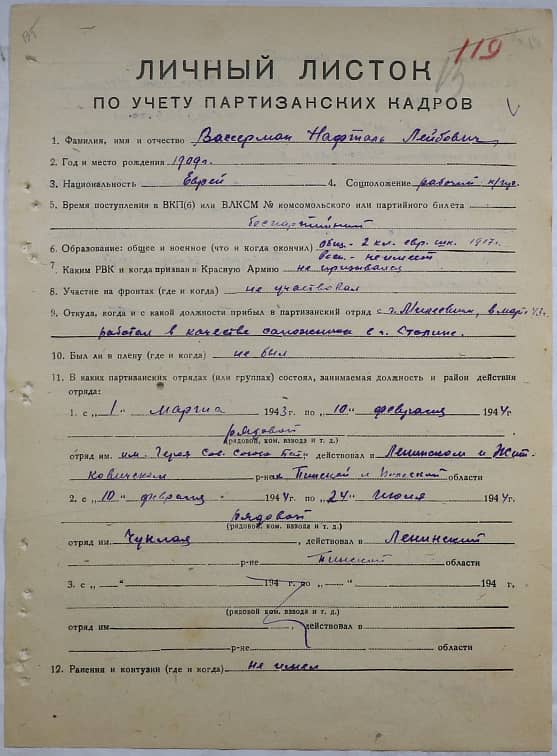 119
ЛИЧНЫЙ ЛИСТОК
ПО УЧЕТУ ПАРТИЗАНСКИХ КАДРОВ
1. Фамилия, имя и отчество Вассерман Нафталь Лейбович
2. Год и место рождения 1909г.
3. Национальность Еврей 4. Соцположение рабочий
5. Время поступления в ВКП(б) или ВЛКСМ № комсомольского или партийного билета
беспартийный
6. Образование: общее и военное (что и когда окончил) общ.- 2 кл. евр. шк. 1917г.
воен.- не имеет
7. Каким РВК и когда призван в Красную Армию не призывался
8. Участие на фронтах (где и когда) не участвовал
9. Откуда, когда и с какой должности прибыл в партизанский отряд с г. в март 43г.
работал в качестве сапожника в г.
10. Был ли в плену (где и когда) не был
11. В каких партизанских отрядах (или группах) состоял, занимаемая должность и район действия
отряда:
1. с „1" марта 1943г. по „10" февраля 1944г.
рядовой
(рядовой, ком. взвода и т. д.)
отряд им. Героя Сов. Союза действовал в Ленинском и Жит-
ковичском р-нах Пинской и Полесской области
2. с „10" февраля 1944г. по „24" июня 1944г.
рядовой
(рядовой, ком. взвода и т. д.)
отряд им. Чуклая, действовал в Ленинский
р-не Пинский области
3. с „—" 194 г. по „—" 194 г.
(рядовой ком. взвода и т. д.)
отряд им. , действовал в
р-не области
12. Ранения и контузии (где и когда) не имел